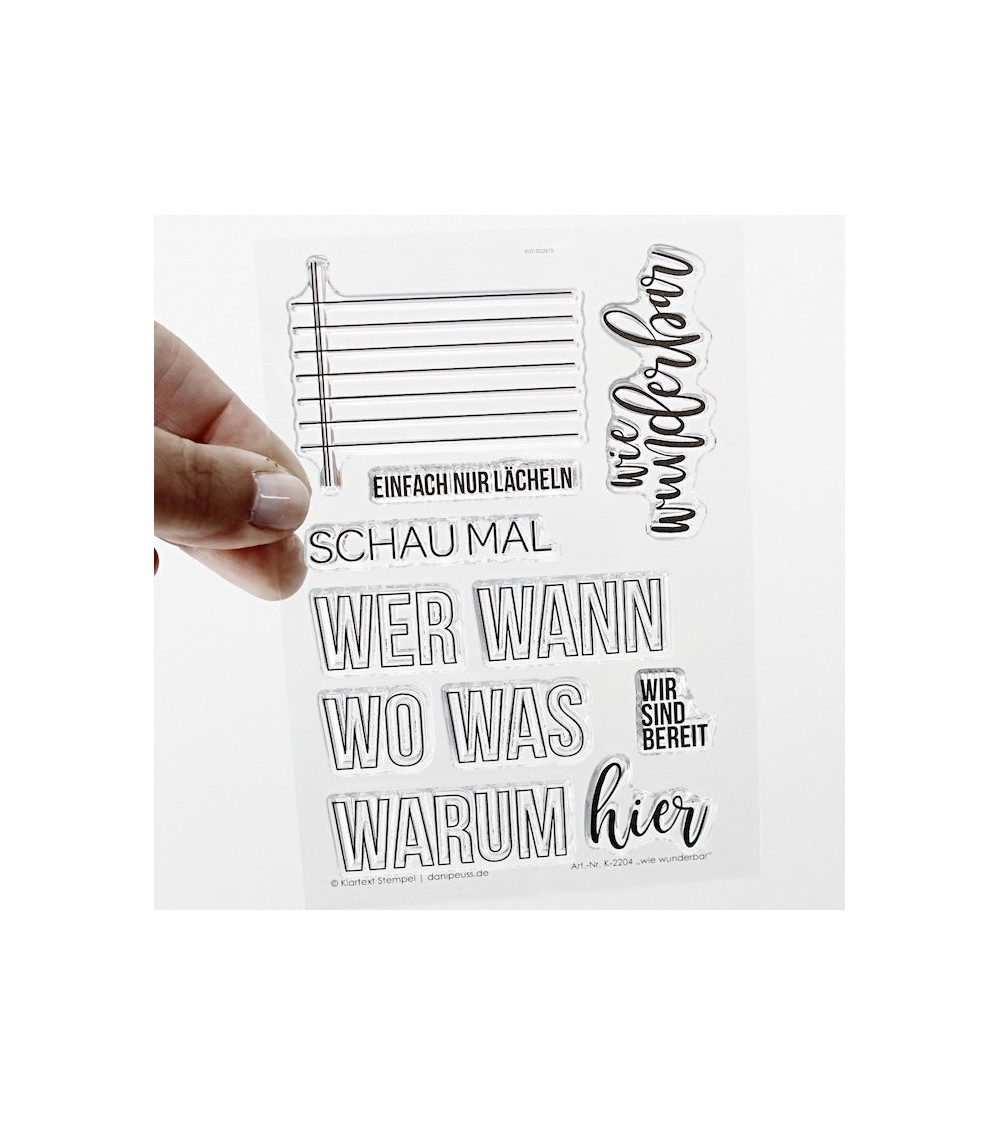 wie
wunderbar
EINFACH NUR LÄCHELN
SCHAU MAL
WER WANN
WO WAS
WIR
SIND
BEREIT
WARUM hier
© Klartext Stempel | danipeuss.de
Art.-Nr. K-2204 „wie wunderbar"